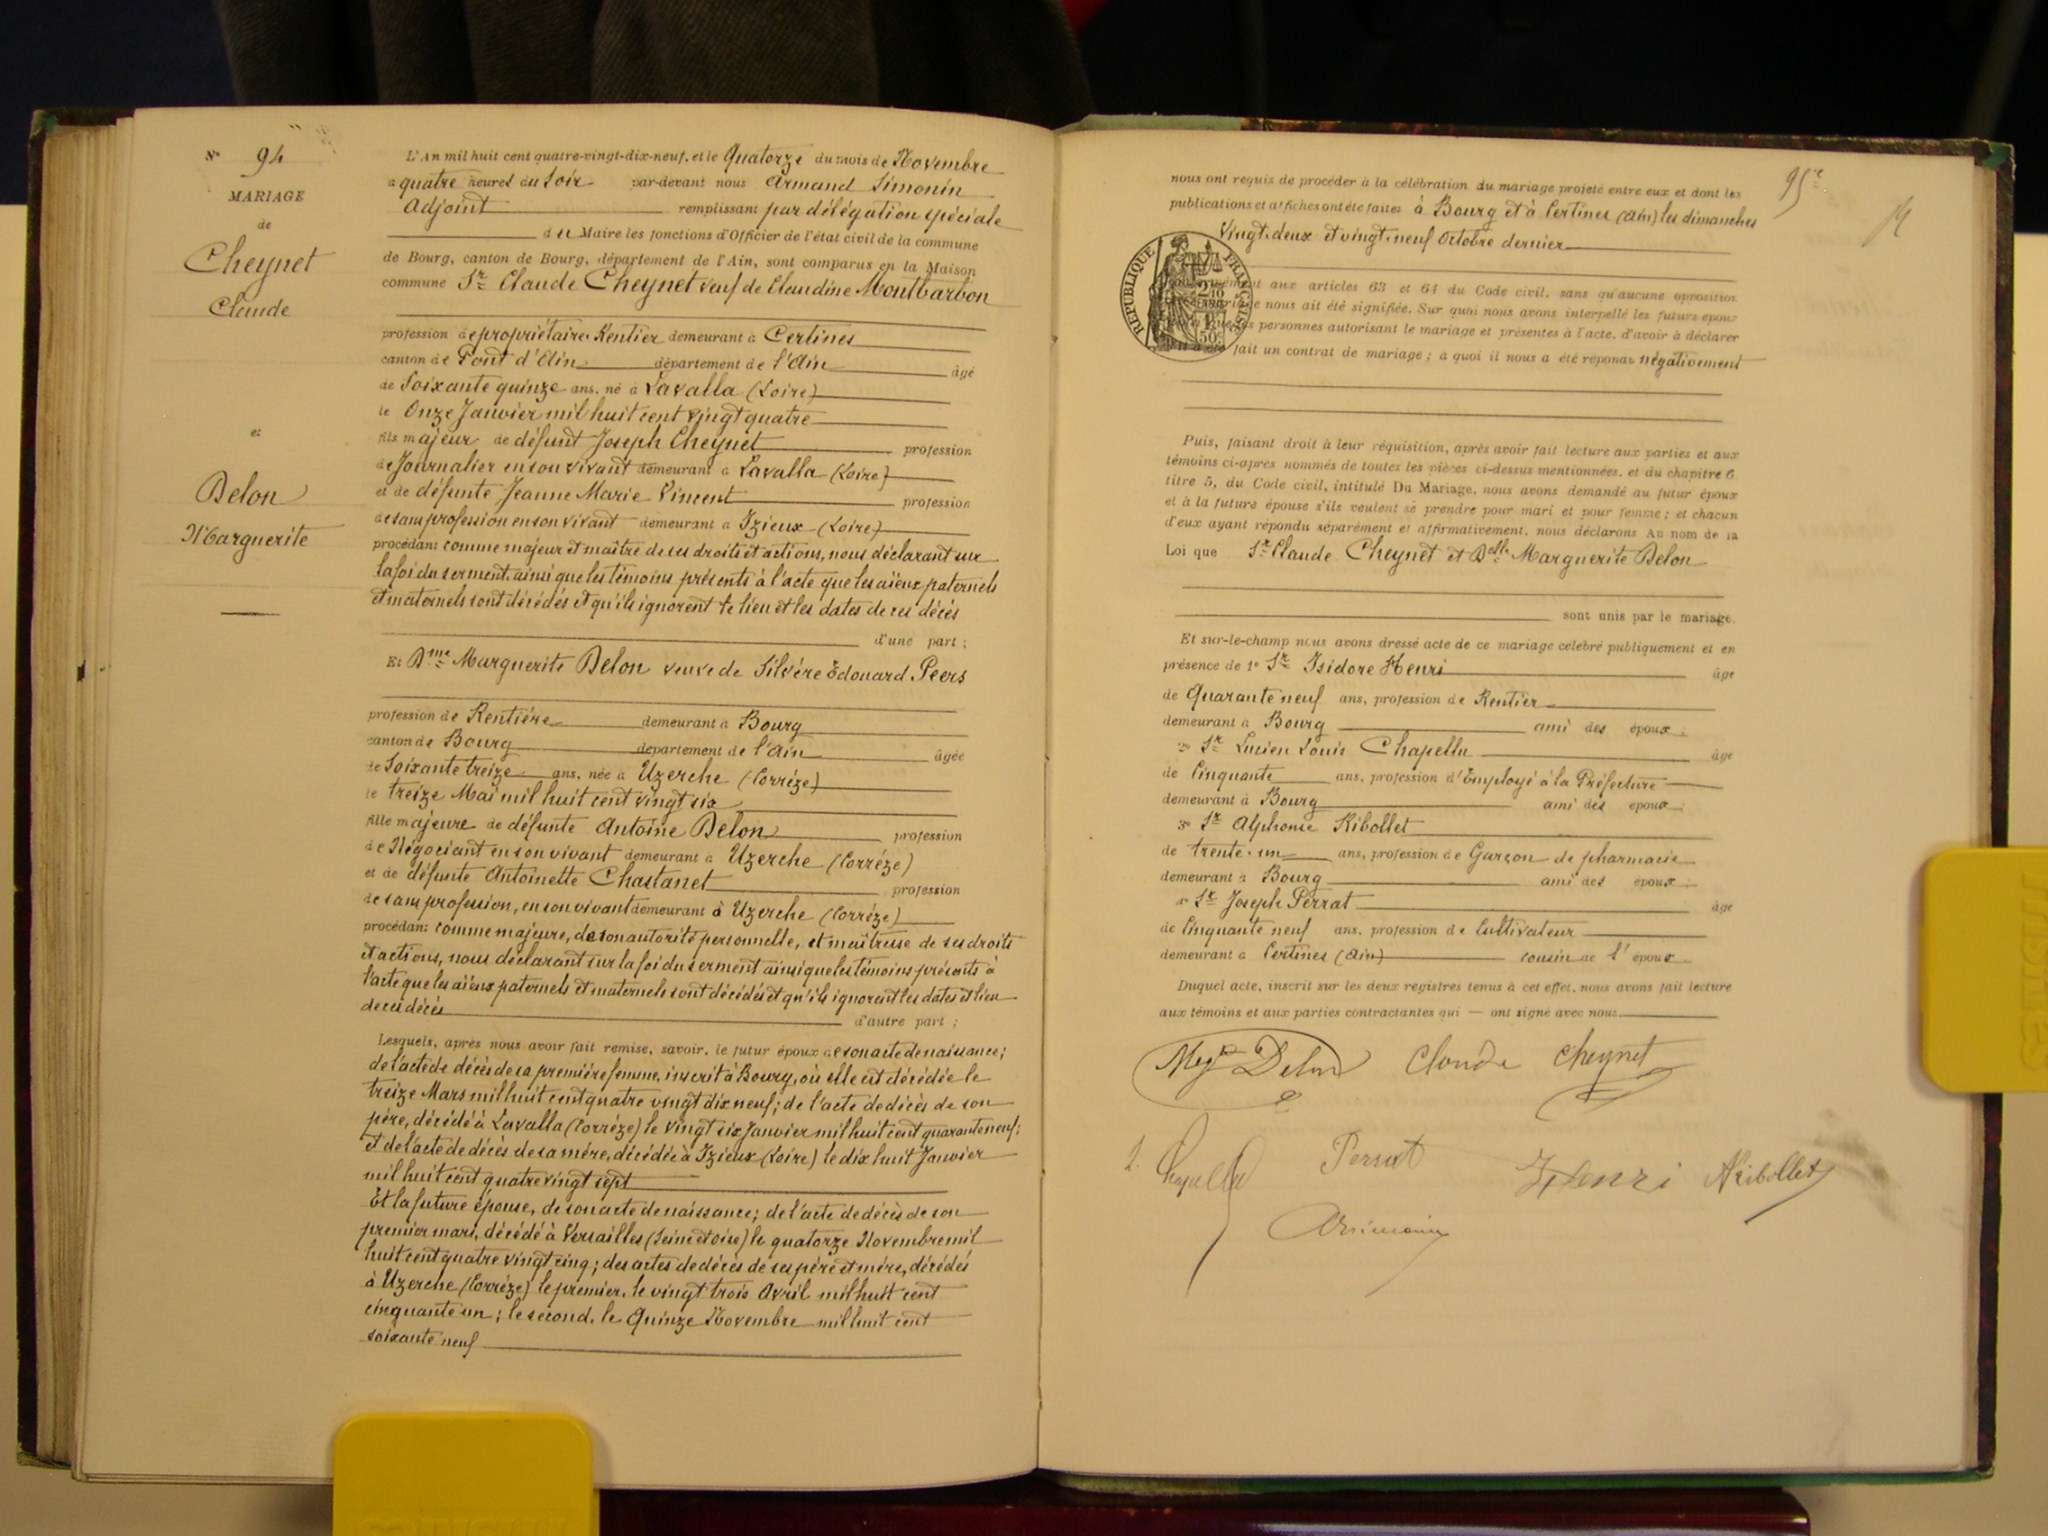 N° 94
MARIAGE
de
Cheynet
Claude
et
Delon
Marguerite
L'An mil huit cent quatre-vingt-dix-neuf, et le Quatorze du mois de Novembre
à quatre heures du Soir par-devant nous Armand Simonin
Adjoint remplissant par délégation spéciale
du Maire les fonctions d'Officier de l'état civil de la commune
de Bourg, canton de Bourg, département de l'Ain, sont comparus en la Maison
commune Sr Claude Cheynet veuf de Claudine Montbarbon
profession de propriétaire Rentier demeurant à Certines
canton de Pont d'Ain département de l'Ain âgé
de Soixante quinze ans, né à Lavalla (Loire)
le Onze Janvier mil huit cent vingt quatre
fils majeur de défunt Joseph Cheynet profession
de Journalier en son vivant demeurant à Lavalla (Loire)
et de défunte Jeanne Marie Vincent profession
de sans profession en son vivant demeurant à Izieux (Loire)
procédant comme majeur et maître de ses droits et actions, nous déclarant sur
la foi du serment, ainsi que les témoins présents à l'acte que les aïeux paternels
et maternels sont décédés et qu'ils ignorent le lieu et les dates de ces décès
d'une part ;
Et Dme Marguerite Delon veuve de Silvère Edouard Peers
profession de Rentière demeurant à Bourg
canton de Bourg département de l'Ain âgée
de Soixante treize ans, née à Uzerche (Corrèze)
le treize Mai mil huit cent vingt six
fille majeure de défunte Antoine Delon profession
de Négociant en son vivant demeurant à Uzerche (Corrèze)
et de défunte Antoinette Chastanet profession
de sans profession, en son vivant demeurant à Uzerche (Corrèze)
procédant comme majeure, de son autorité personnelle, et maîtresse de ses droits
et actions, nous déclarant sur la foi du serment ainsi que les témoins présents à
l'acte que les aïeux paternels et maternels sont décédés et qu'ils ignorent les dates et lieu
de ces décès d'autre part ;
Lesquels, après nous avoir fait remise, savoir, le futur époux de son acte de naissance ;
de l'acte de décès de sa première femme, inscrit à Bourg, où elle est décédée le
treize Mars mil huit cent quatre vingt dix neuf ; de l'acte de décès de son
père, décédé à Lavalla (Corrèze) le vingt six Janvier mil huit cent quarante neuf ;
et de l'acte de décès de sa mère, décédée à Izieux (Loire) le dix huit Janvier
mil huit cent quatre vingt sept
Et la future épouse, de son acte de naissance ; de l'acte de décès de son
premier mari, décédé à Versailles (Seine et oise) le quatorze Novembre mil
huit cent quatre vingt cinq ; des actes de décès de ses père et mère, décédés
à Uzerche (Corrèze) le premier, le vingt trois Avril mil huit cent
cinquante un ; le second, le Quinze Novembre mil huit cent
soixante neuf
95e
nous ont requis de procéder à la célébration du mariage projeté entre eux et dont les
publications et affiches ont été faites à Bourg et à Certines (Ain) les dimanches
Vingt-deux et vingt-neuf Octobre dernier
RÉPUBLIQUE FRANÇAISE
aux articles 63 et 64 du Code civil, sans qu'aucune opposition
nous ait été signifiée. Sur quoi nous avons interpellé les futurs époux
personnes autorisant le mariage et présentes à l'acte, d'avoir à déclarer
fait un contrat de mariage ; à quoi il nous a été répondu négativement
Puis, faisant droit à leur réquisition, après avoir fait lecture aux parties et aux
témoins ci-après nommés de toutes les pièces ci-dessus mentionnées, et du chapitre 6,
titre 5, du Code civil, intitulé Du Mariage, nous avons demandé au futur époux
et à la future épouse s'ils veulent se prendre pour mari et pour femme ; et chacun
d'eux ayant répondu séparément et affirmativement, nous déclarons Au nom de la
Loi que Sr Claude Cheynet et Delle Marguerite Delon
sont unis par le mariage.
Et sur-le-champ nous avons dressé acte de ce mariage célébré publiquement et en
présence de 1° Sr Isidore Henri âgé
de Quarante neuf ans, profession de Rentier
demeurant à Bourg ami des époux
2° Sr Lucien Louis Chapellu âgé
de Cinquante ans, profession d'Employé à la Préfecture
demeurant à Bourg ami des époux
3° Sr Alphonse Ribollet
de trente-un ans, profession de Garçon de pharmacie
demeurant à Bourg ami des époux
4° Sr Joseph Perrat âgé
de Cinquante neuf ans, profession de Cultivateur
demeurant à Certines (Ain) cousin de l'époux
Duquel acte, inscrit sur les deux registres tenus à cet effet, nous avons fait lecture
aux témoins et aux parties contractantes qui — ont signé avec nous
Mgte Delon Claude Cheynet
L. Chapellu Perrat Henri ARibollet
ASimonin